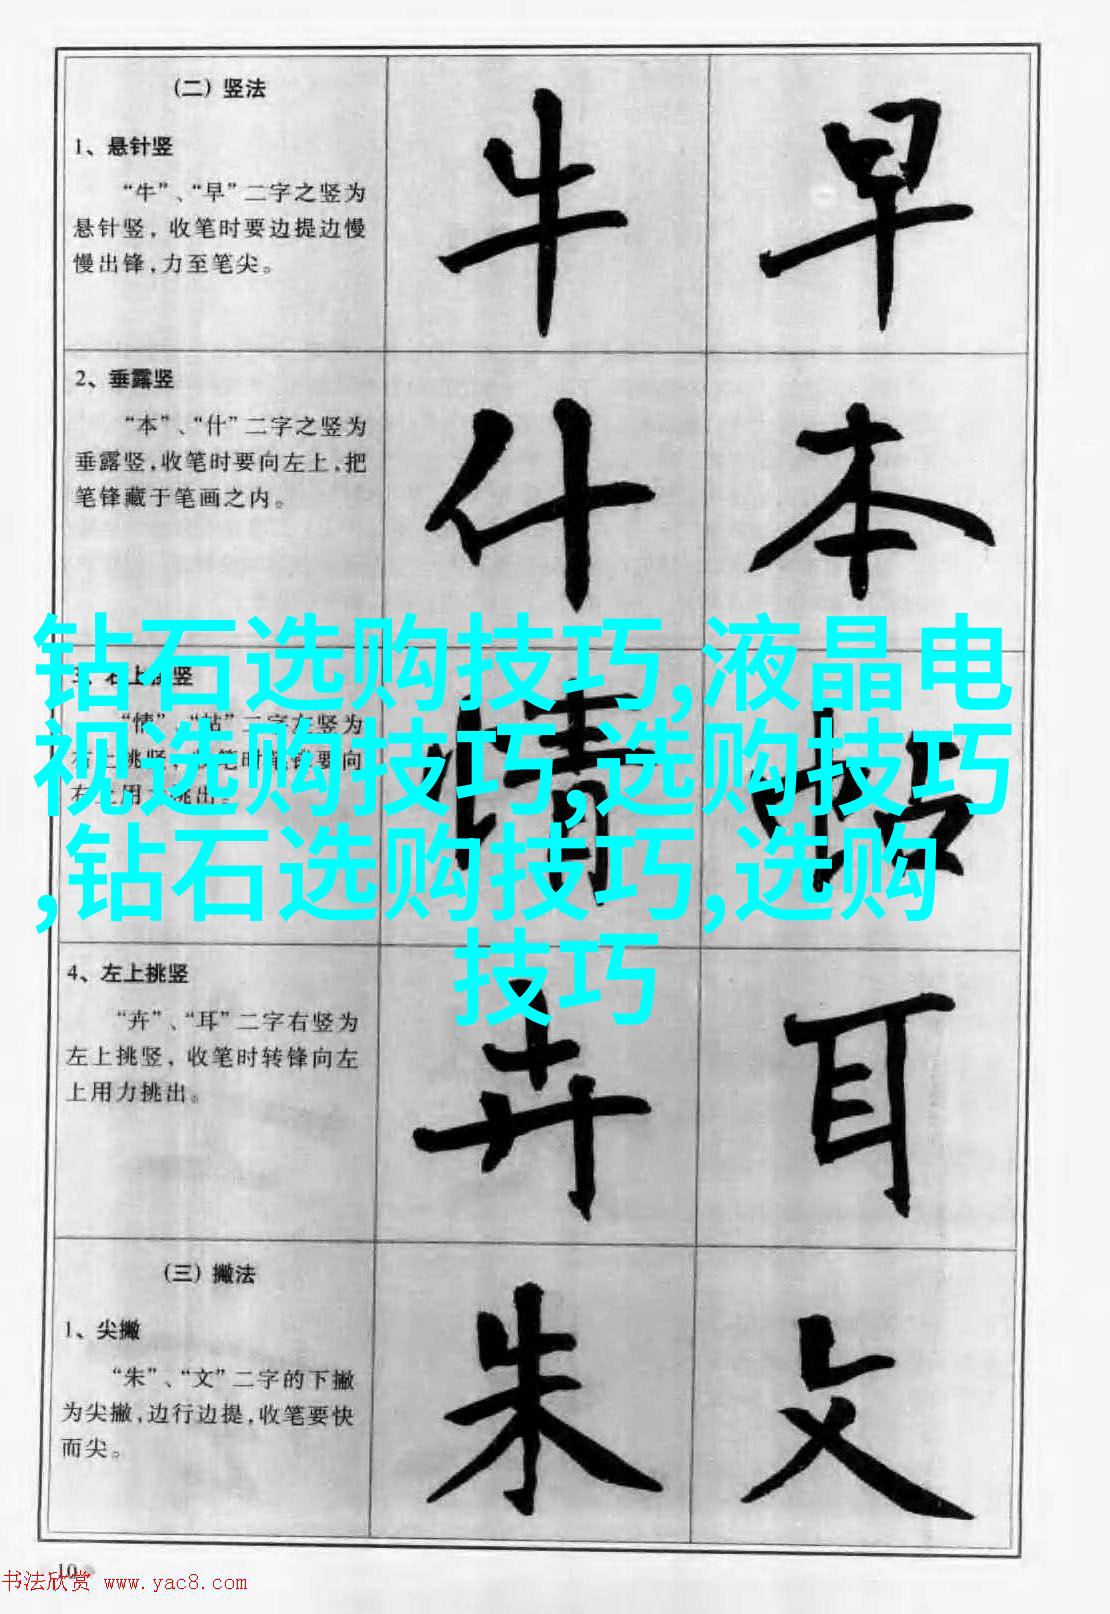 （二）竖法
1、悬针竖
“牛”、“早”二字之竖为
悬针竖，收笔时要边提边慢
慢出锋，力至笔尖。
牛
早
2、垂露竖
“本”、“什”二字之竖为
垂露竖，收笔时要向左上，把
笔锋藏于笔画之内。
什
本
钻石选购技巧,液晶电
视选购技巧,选购技巧
,钻石选购技巧,选购
技巧
“情”、“帖”二字左竖为
情
帖
4、左上挑竖
“卉”、“耳”二字右竖为
左上挑竖，收笔时转锋向左
上用力挑出。
卉
耳
（三）撇法
1、尖撇
“朱”、“文”二字的下撇
为尖撇，边行边提，收笔要快
而尖。
朱
文
10
书法欣赏 www.yac8.com